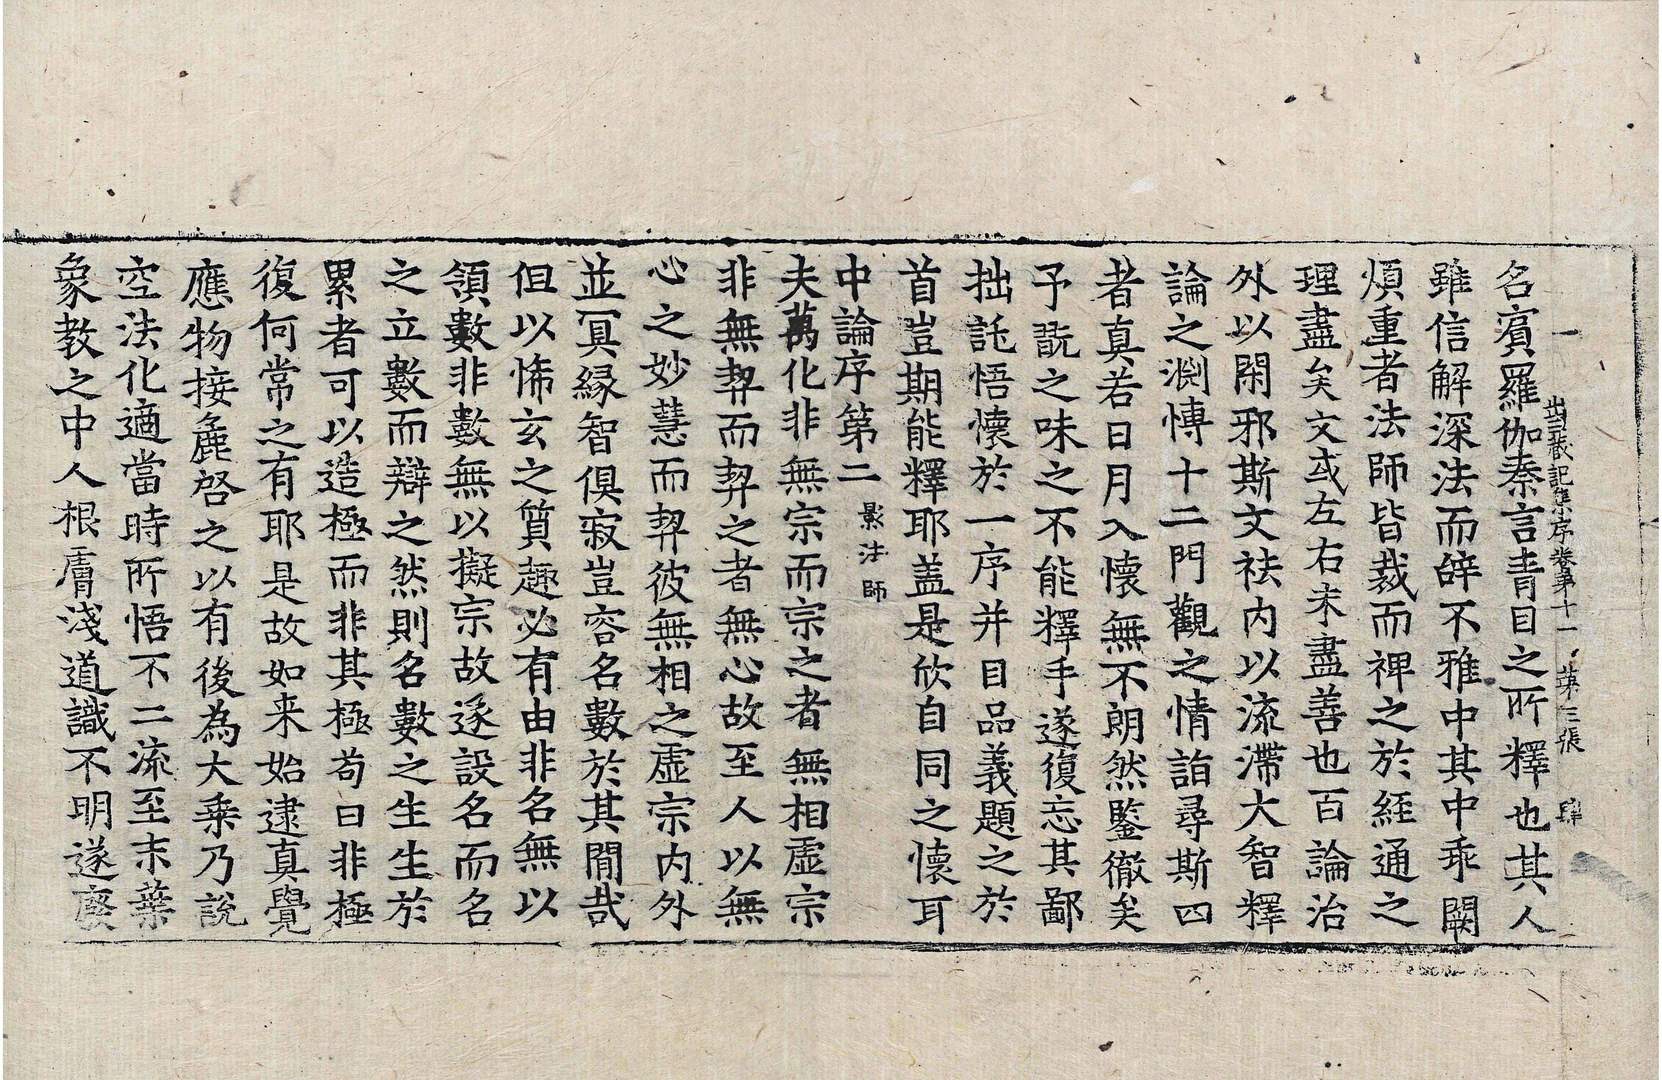 出三藏記集序卷第十一 第三張 肆
名賓羅伽秦言青目之所釋也其人
雖信解深法而辝不雅中其中乖闕
煩重者法師皆裁而裨之於經通之
理盡矣文或左右未盡善也百論治
外以閑邪斯文祛内以流滯大智釋
論之渕愽十二門觀之情詣尋斯四
者真若日月入懷無不朗然鑒徹矣
予翫之味之不能釋手遂復忘其鄙
拙託悟懷於一序并目品義題之於
首豈期能釋耶蓋是欣自同之懷耳
中論序第二 影法師
夫萬化非無宗而宗之者無相虛宗
非無契而契之者無心故至人以無
心之妙慧而契彼無相之虛宗内外
並冥緣智俱寂豈容名數於其間哉
但以悕玄之質趣必有由非名無以
領數非數無以擬宗故遂設名而名
之立數而辯之然則名數之生生於
累者可以造極而非其極苟曰非極
復何常之有耶是故如来始逮真覺
應物接麁啓之以有後為大乘乃說
空法化適當時所悟不二流至末葉
象教之中人根膚淺道識不明遂廢